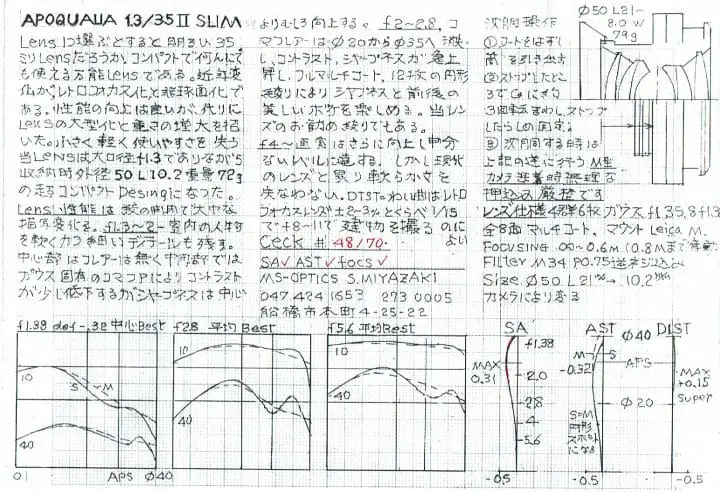 APOQUALIA 1.3/35 II SLIM
Lens 1つ選ぶとすると 明るい 35
ミリLensだろうか、コンパクトで何んにで
も使える万能Lensである。近年変
化が、レトロフォーカス化と非球面化で
ある。性能の向上は良いが、代りに
Lensの大型化と重さの増大を招
いた。小さく軽く使いやすさを失う
当Lensは大口径f1.3でありながら
収納時外径 50 L10.2 重量 72g
の超コンパクト Desingになった。
Lens性能は 絞の開閉で大巾な
描写変化る。f1.3~2- 室内の人物
を軟くカつ細いデテールも残す。
中心部はフレアーは無く中間部では
ガウス固有のコマフレアによりコントラスト
が少し低下するがシャープネスは中心
よりむしろ向上する。f2~2.8, コ
マフレアーはΦ20からΦ35へ
し、コントラスト、シャープネスが急上
昇し、フルマルチコート、12枚の円形
絞りにより シャプネスと前后の
美しいボケを楽しめる。当レン
ズのお勧め絞りでもある。
f4~ 画質はさらに向上し申分
ないレベルに達する。しかし現代
のレンズと異り軟らかさを
失なわない。DIST=わい曲はレトロ
フォーカスレンズ±2-3%とくらべ 1/15
で f8~11で 建物を撮るのに
よい
Ceck # 48/70
SA✓ AST✓ focs✓
MS-OPTICS S.MIYAZAKI
047 424 1653 273 0005
船橋市本町4-25-22
沈胴操作
①フードをはずし
筒を引き出す
②ストップしたとこ
3回転まわし、ストップ
したらしめ固定。
③ 沈胴する時は
上記の逆に行う M型
カメラ装着時無理な
押込み厳禁です
レンズ仕様 4群6枚 ガウス f1.35,8 f1.3
全8面マルチコート、マウント Leica M.
FOCUSING ∞~0.6m (0.8mまで連動
Filter M34 P0.75 逆ネジ込み
Size Ø50 L21 → 10.2
カメラにより変る
Ø50 L21~
8.0 W
79g
f1.38 def-.32 中心Best
f2.8 平均Best
f5.6 平均Best
10
S
M
40
10
40
10
40
0
APS
Ø40
SA
f1.38
MAX
0.31
2.0
2.8
4
5.6
-0.5
AST
M
-0.32
S
S=M
円形
スポット
になる
-0.5
Ø40
APS
Ø20
DIST
MAX
+0.15
super
-0.5